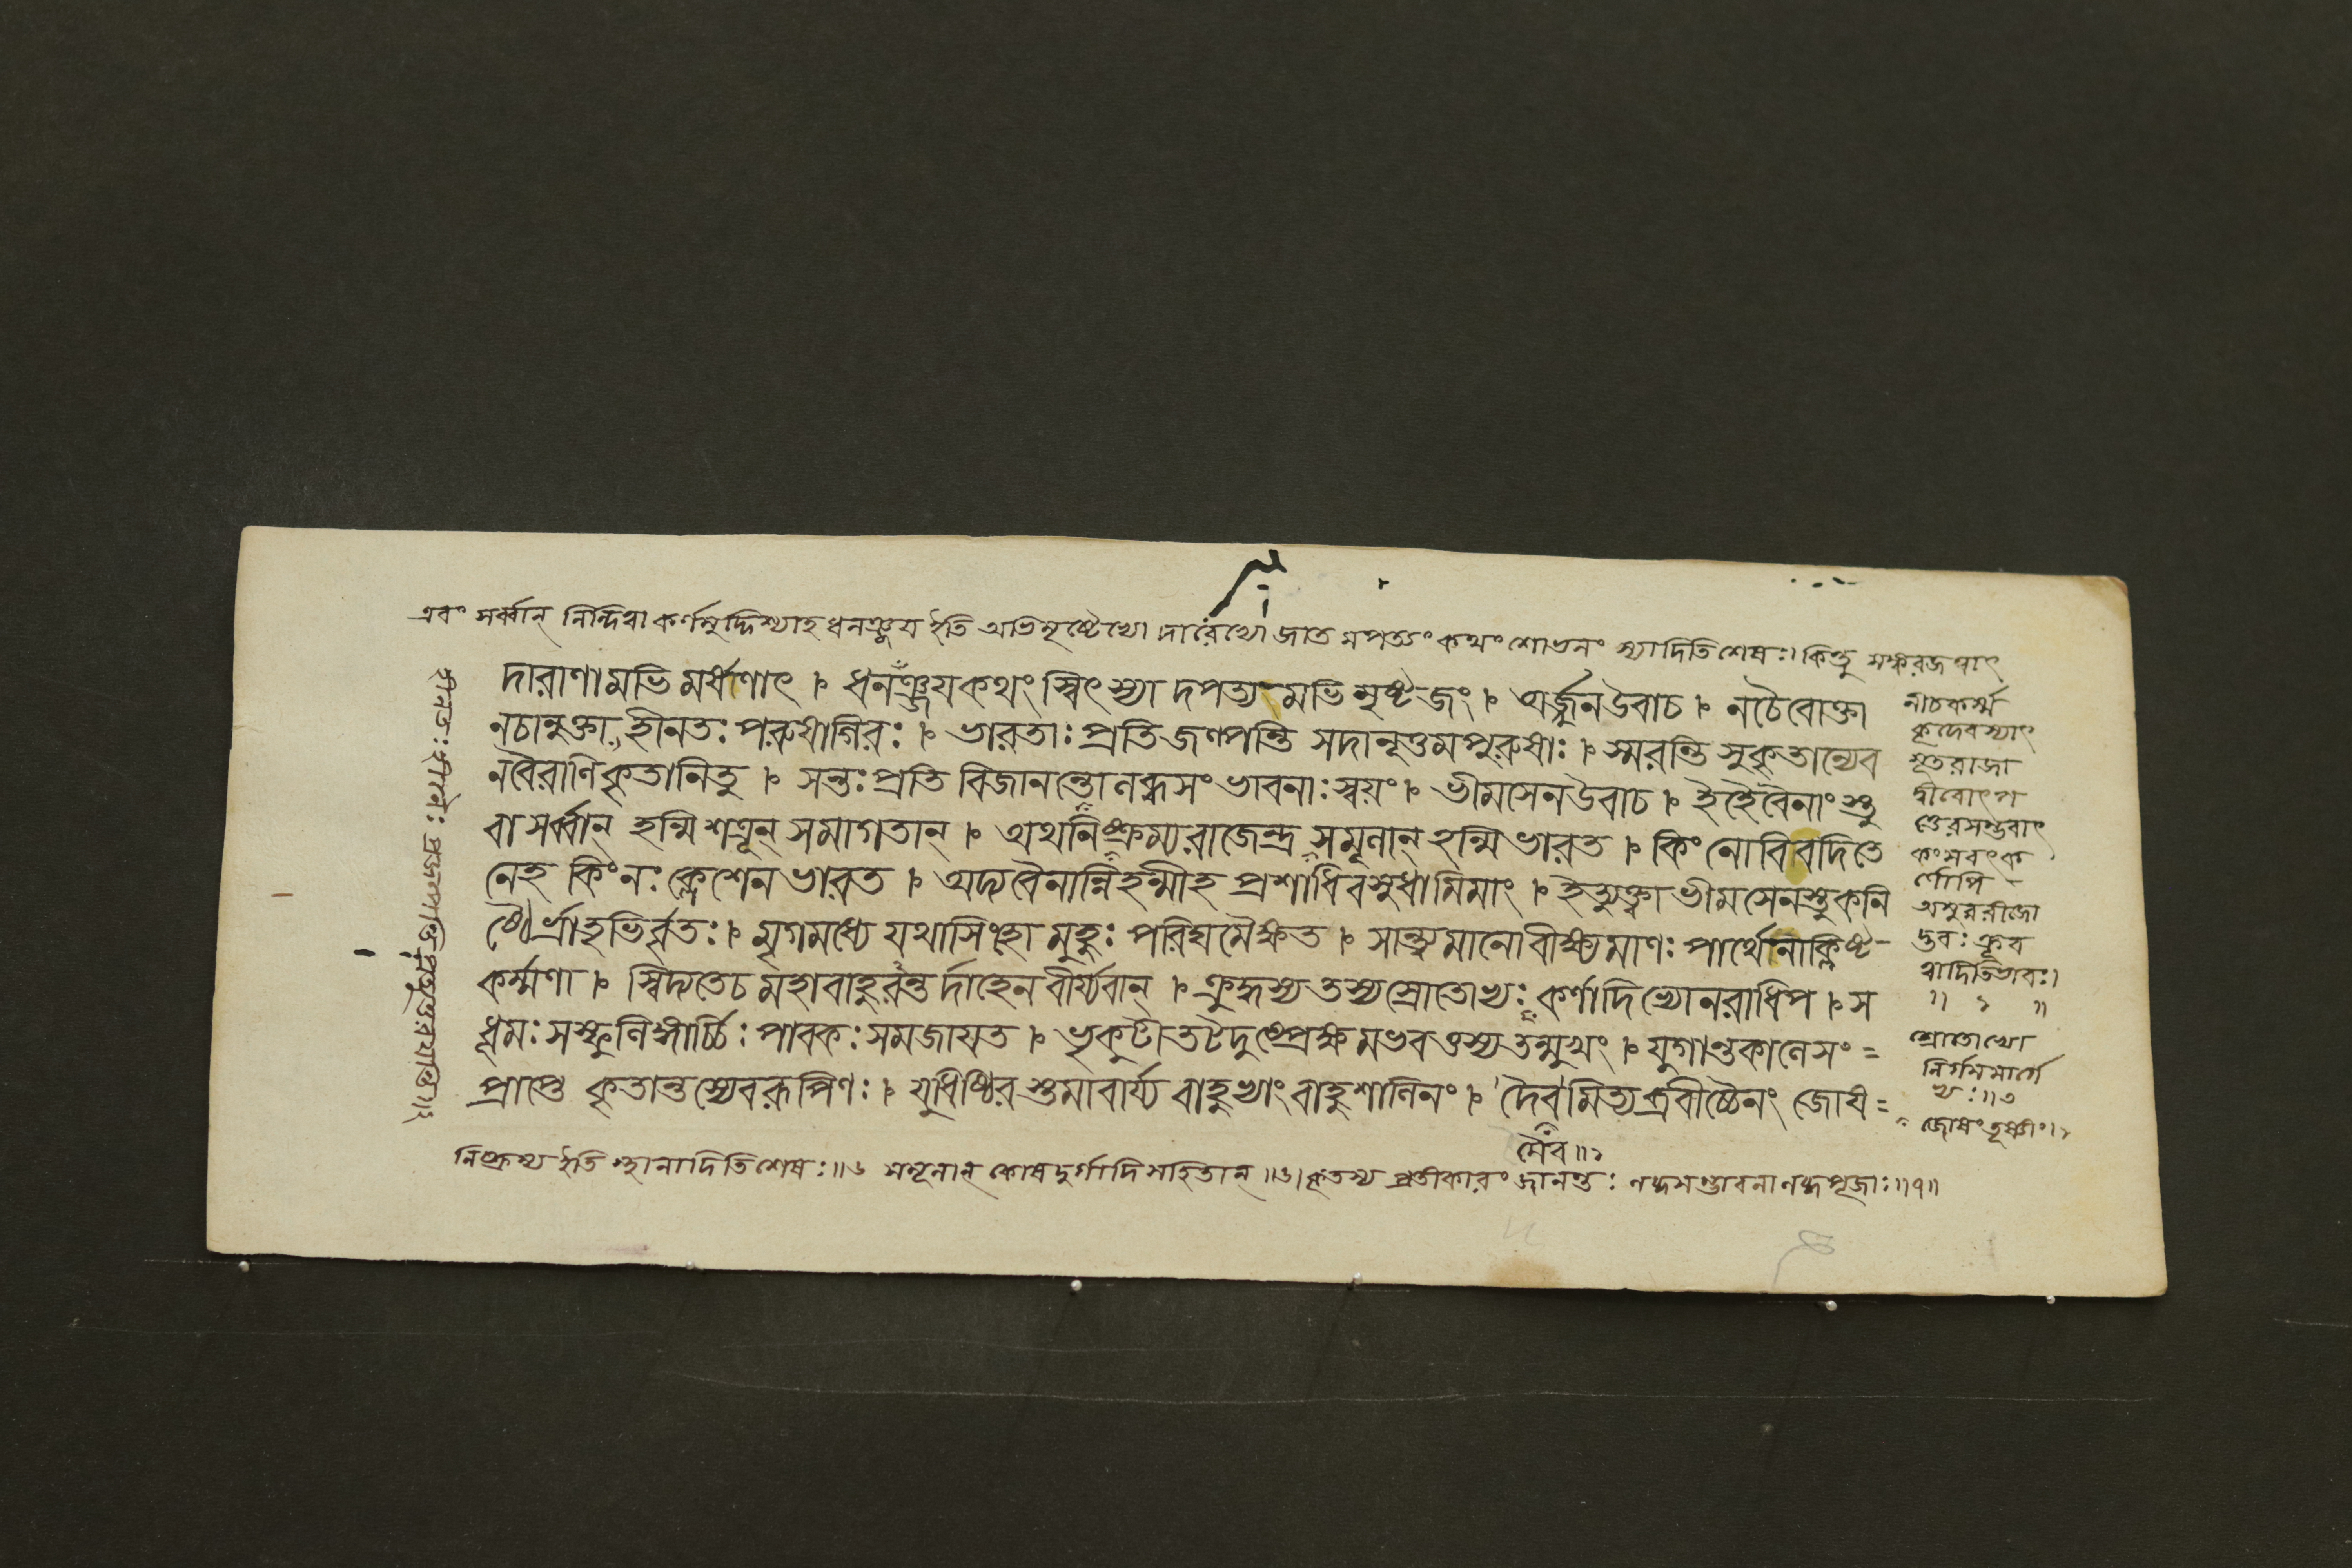 এবং সর্ব্বান্ নিন্দিত্বা কর্ণমুদ্দিশ্যাহ ধনঞ্জয় ইতি অভিমৃষ্টেভ্যো দারেভ্যো জাতমপত্যং কথং শোভনং স্যাদিতি শেষঃ। কিন্তু
দারাণামভিমর্ষণাৎ । ধনঞ্জয কথং স্বিৎ স্যাদপত্যমভিমৃষ্টজং । অর্জ্জুন উবাচ । নচৈবোক্তা
নচানুক্তা হীনতঃ পরুষা গিরঃ । ভারতাঃ প্রতিজল্পন্তি সদানূত্তমপুরুষাঃ । স্মরন্তি সুকৃতান্যেব
নবৈরাণি কৃতানি তু । সন্তঃ প্রতিবিজানন্তো লব্ধসংভাবনাঃ স্বয়ং । ভীমসেন উবাচ । ইহৈবৈনাং স্তু
বা সর্ব্বান্ হন্মি শত্রূন্ সমাগতান্ । অথ নিষ্ক্রম্য রাজেন্দ্র সমূলান্ হন্মি ভারত । কিং নো বিবদিতে
নেহ কিং নঃ ক্লেশেন ভারত । অদ্যবৈনান্নিহন্মীহ প্রশাধি বসুধামিমাং । ইত্যুক্ত্বা ভীমসেনস্তু কনি
ষ্ঠৈর্ভ্রাতৃভির্বৃতঃ । মৃগমধ্যে যথা সিংহো মুহুঃ পরিঘমৈক্ষত । সান্ত্ব্যমানো বীক্ষ্যমাণঃ পার্থেনাক্লিষ্ট-
কর্ম্মণা । স্বিদ্যতে চ মহাবাহুরন্তর্দাহেন বীর্য্যবান্ । ক্রুদ্ধস্য তস্য স্রোতোভ্যঃ কর্ণাদিভ্যো নরাধিপ । স
ধূমঃ সস্ফুলিঙ্গার্চ্চিঃ পাবকঃ সমজায়ত । ভৃকুটীতটদুষ্প্রেক্ষমভবত্তস্য তন্মুখং । যুগান্তকালে সং=
প্রাপ্তে কৃতান্তস্যেব রূপিণঃ । যুধিষ্ঠিরস্তমাবার্য্য বাহুভ্যাং বাহুশালিনং । দৈবমিত্যব্রবীষ্ঠৈনং জোষ=
মৈব॥১
নিষ্ক্রম্য ইতি স্থানাদিতি শেষঃ॥৬ সমূলান্ কোষদুর্গাদিসহিতান্ ॥৬। কৃতস্য প্রতীকারং জানন্তঃ লব্ধসম্ভাবনা লব্ধপূজাঃ॥৭॥
নীচকর্ম্ম
কৃদেবস্যাৎ
সূতরাজা
কর্ণোপি
দ্ভবঃ ক্রূর
ত্বাদিতিভাবঃ।
স্রোতোভ্যো
নির্গমমার্গে
ভ্যঃ॥৩
জোষং তূষ্ণীং।১